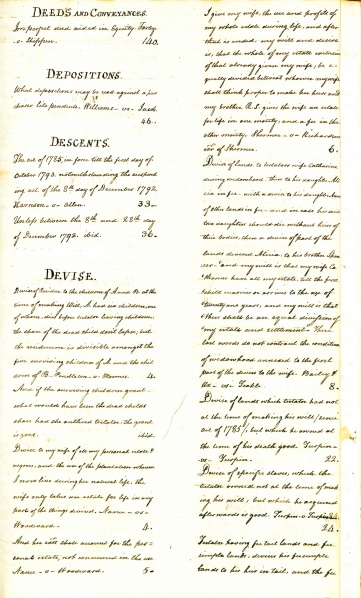 DEEDS AND CONVEYANCES.
Improper deed aided in Equity. Farley
-v- Shippen. 140.
DEPOSITIONS.
What depositions may be read against a pur
chaser lite pendente. Williams -vs- Jack
46.
DESCENTS.
The act of 1785, in force till the first day of
October 1793. notwithstanding the suspend
ing act of the 8th day of December 1792.
Harrison -v- Allen. 33-
Unless between the 8th and 28th day
of December 1792. ibid. 36-
DEVISE.
Devise of Residue to the children of A and B. at the
time of making Will, A. had six children, one
of whom, died before testator leaving children,
the share of the dead child don't lapse, but
the residuum is divisible amongst the
five surviving children of A and the chil
dren of B. Pendleton -v- Hoomes. 4.
And if the surviving children grant
what would have been the dead childs
share had she outlived testator, the grant
is good. ibid.
Devise to my wife of all my personal estate &
negroes, and the use of the plantation whereon
I now live during her natural life, the
wife only takes an estate for life in any
part of the things devised. Name -vs-
Woodward. 4.
And her exrs shall account for the per-
sonal estate, not consumed in the use
Name -v- Woodward. 5-
I give my wife, the use and profits of
my whole estate during life, and after
that is ended, my will and desire
is, that the whole of my estate exclusive
of that already given my wife, be e
qually divided between whom my wife
shall think proper to make her heirs and
my brother R.S. gives the wife an estate
for life in one moiety, and a fee in the
other moiety. Shermer -v- Richardson
exr of Shermer. 6.
Devise of lands, to testators wife Catharine
during widowhood, then to his daughter Ali
cia in fee - with a devise to his daughter
of other lands in fee - and in case his said
two daughters should die without heirs of
their bodies, then a devise of part of the
lands devised Alicia, to his brother
"and my will is that my wife Ca
tharine have all my estate, till the first
"child marries or arrives to the age of
"twenty one years, and my will is that
"there shall be an equal division of
"my estate and settlement - These
last words do not controul the condition
of widowhood annexed to the first
part of the devise to the wife. Bailey &
Ux -vs- Teakle. 8-
Devise of lands which testator had not
at the time of making his will (since
act of 1785), but which he owned at
the time of his death good. Turpin
-vs- Turpin. 22.
Devise of specific slaves, which the
testator owned not at the time of mak
ing his will, but which he acquired
afterwards is good. Turpin v Turpin
24.
Testator having fee tail lands and fee
simple lands, devises his fee simple
lands to his heir in tail, and the fee